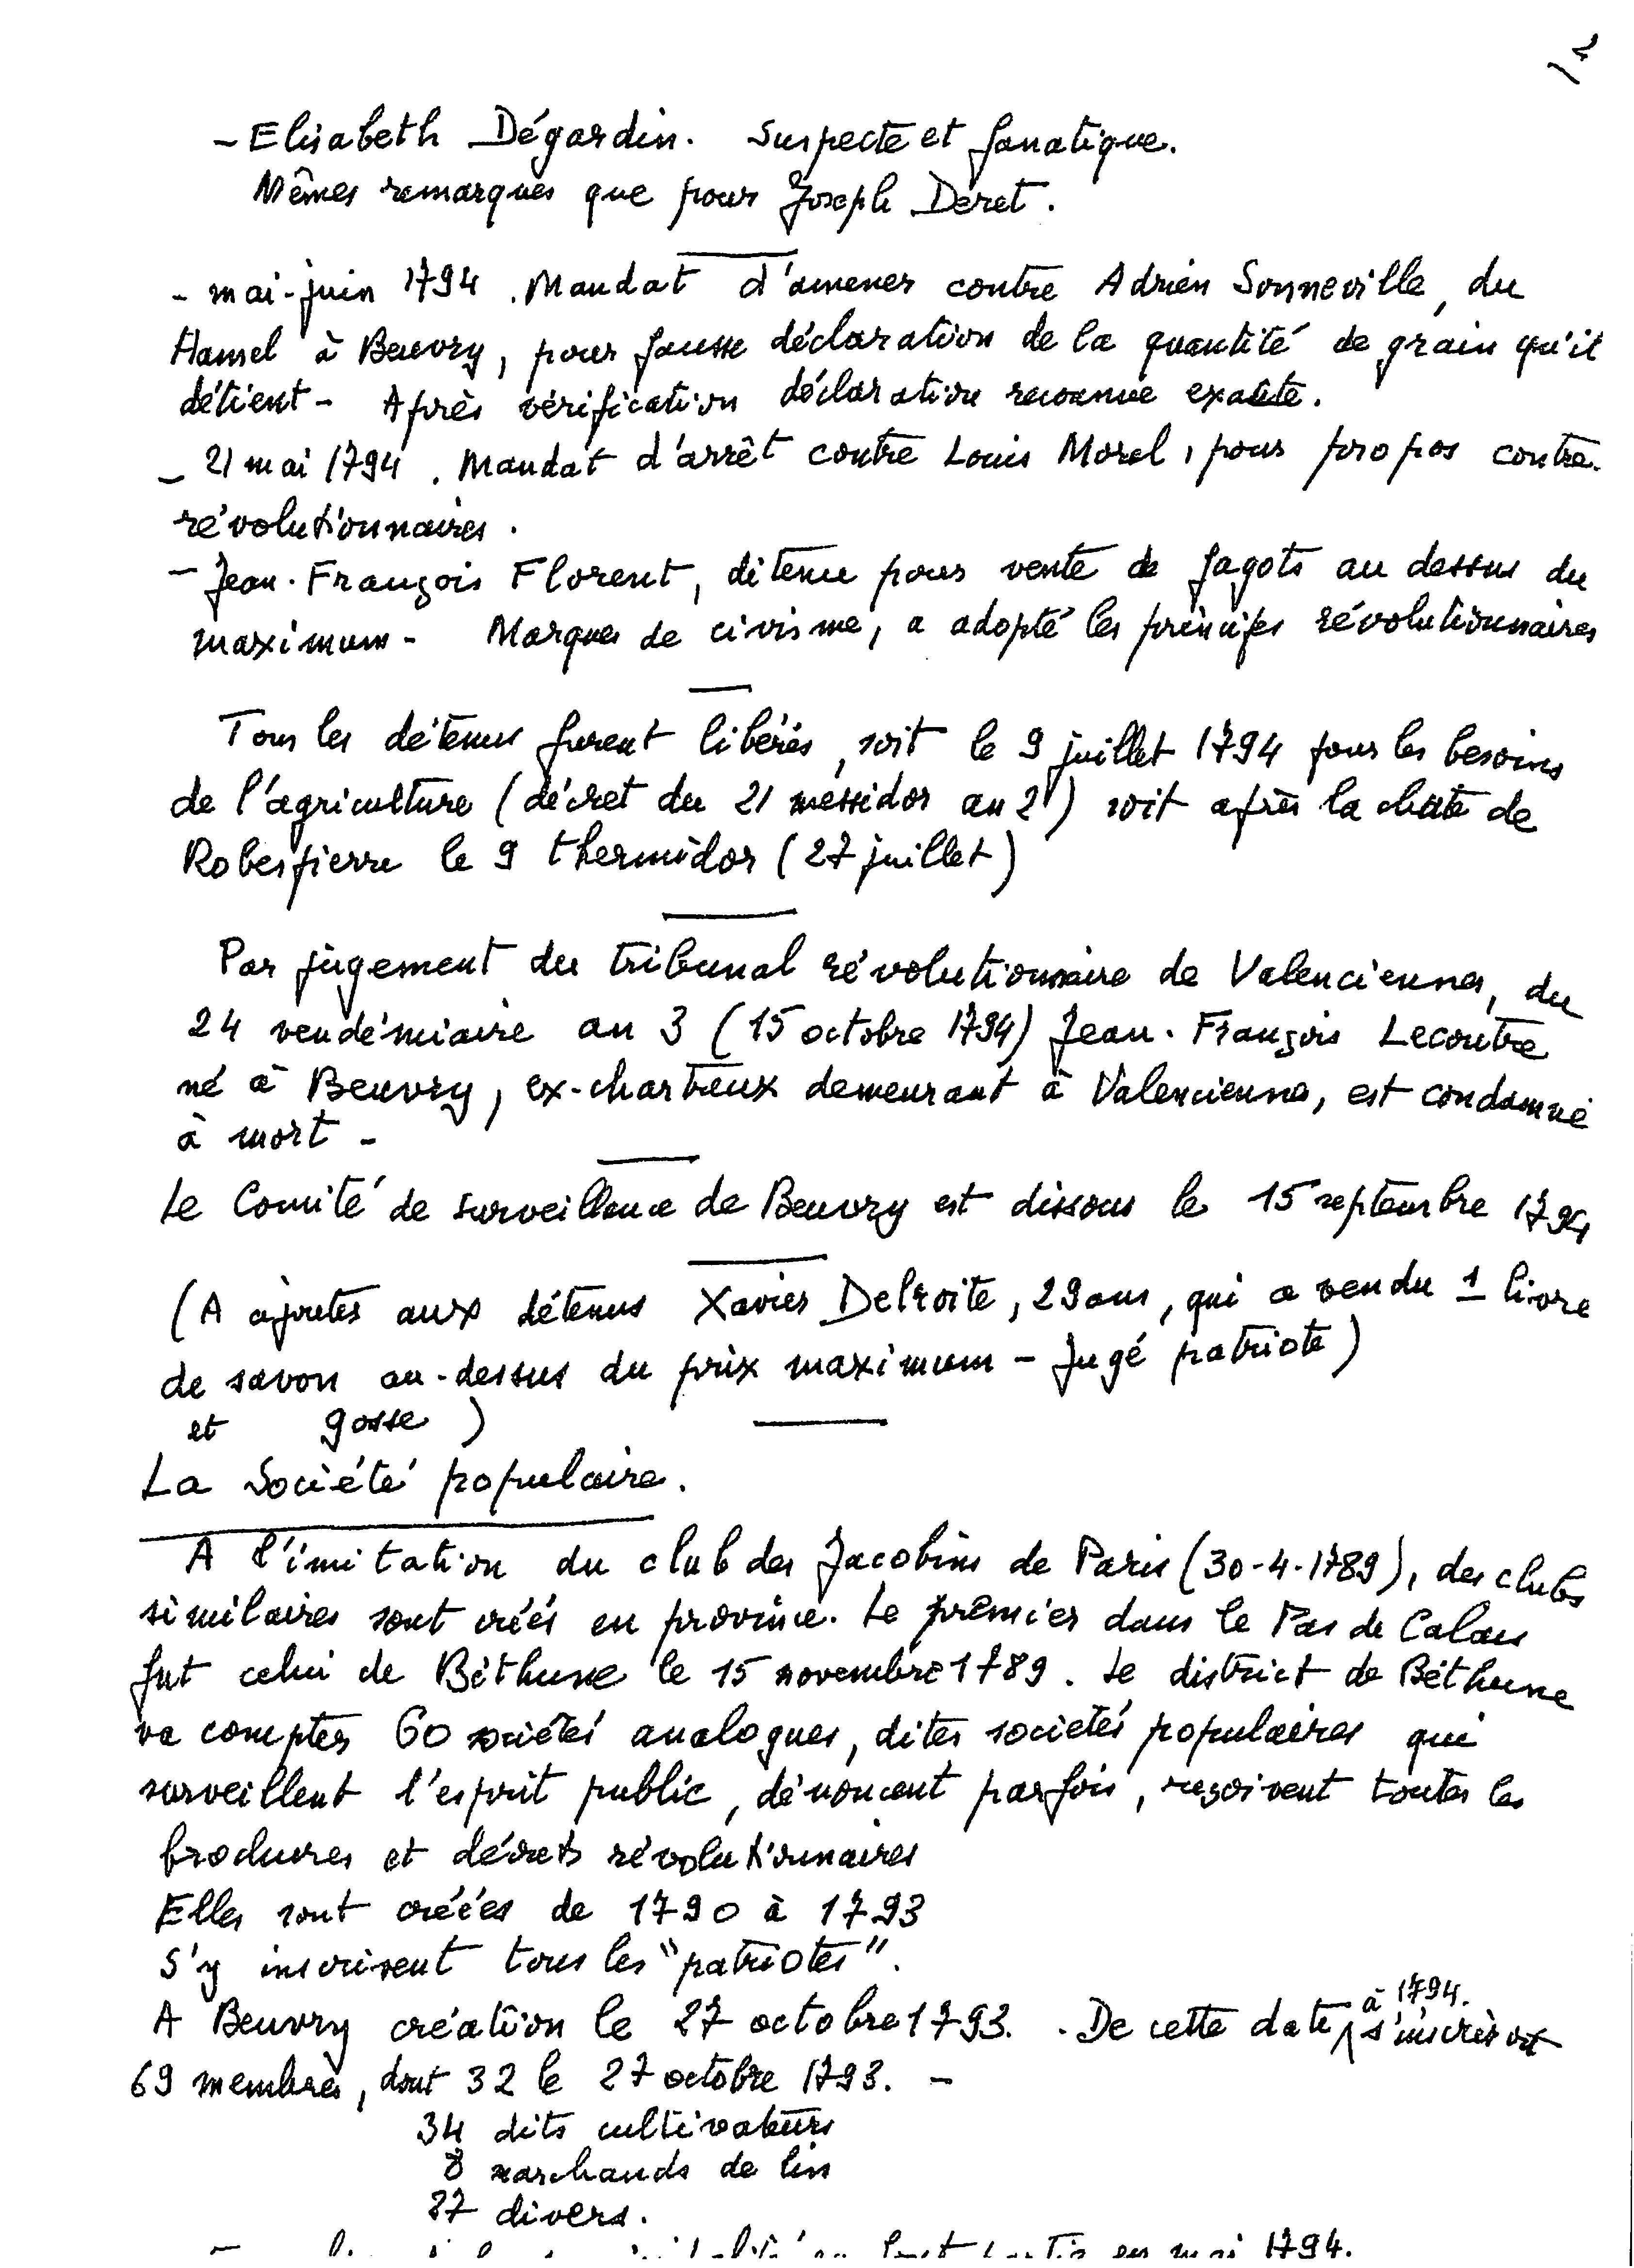 2
- Elisabeth Dégardin. Suspecte et fanatique.
Mêmes remarques que pour Joseph Déret.
- mai-juin 1794. Mandat d'amener contre Adrien Sonneville, du
Hamel à Beuvry, pour fausse déclaration de la quantité de grain qu'il
détient - Après vérification déclaration reconnue exacte.
- 21 mai 1794. Mandat d'arrêt contre Louis Morel, pour propos contre-
révolutionnaires.
- Jean-François Florent, détenu pour vente de fagots au dessus du
maximum - Marques de civisme, a adopté les principes révolutionnaires
Tous les détenus furent libérés, soit le 9 juillet 1794 pour les besoins
de l'agriculture (décret du 21 messidor an 2) soit après la chute de
Robespierre le 9 thermidor (27 juillet)
Par jugement du tribunal révolutionnaire de Valenciennes, du
24 vendémiaire an 3 (15 octobre 1794) Jean-François Lecoutre
né à Beuvry, ex-chartreux demeurant à Valenciennes, est condamné
à mort -
Le Comité de surveillance de Beuvry est dissous le 15 septembre 1794
(A ajouter aux détenus Xavier Delroite, 29 ans, qui a vendu 1 livre
de savon au-dessus du prix maximum - Jugé patriote)
et gosse )
La Société populaire.
A l'imitation du club des Jacobins de Paris (30-4-1789), des clubs
similaires sont créés en province. Le premier dans le Pas de Calais
fut celui de Béthune le 15 novembre 1789. Le district de Béthune
va compter 60 sociétés analogues, dites sociétés populaires qui
surveillent l'esprit public, dénoncent parfois, reçoivent toutes les
brochures et décrets révolutionnaires
Elles sont créées de 1790 à 1793
S'y inscrivent tous les "patriotes".
A Beuvry création le 27 octobre 1793. . De cette date à 1794. s'inscrivent
69 membres, dont 32 le 27 octobre 1793. -
34 dits cultivateurs
8 marchands de lin
27 divers.
en mai 1794.